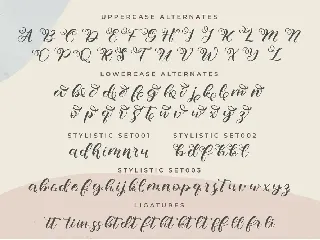 UPPERCASE ALTERNATES
A B C D E F G H I J K L M N
O P Q R S T U V W X Y Z
LOWERCASE ALTERNATES
a b c d e f g h i j k l m n
o p q r s t u v w x y z
STYLISTIC SET001 STYLISTIC SET002
a d h i m n r u
STYLISTIC SET003
a b c d e f g h i j k l m n o p q r s t u v w x y z
LIGATURES